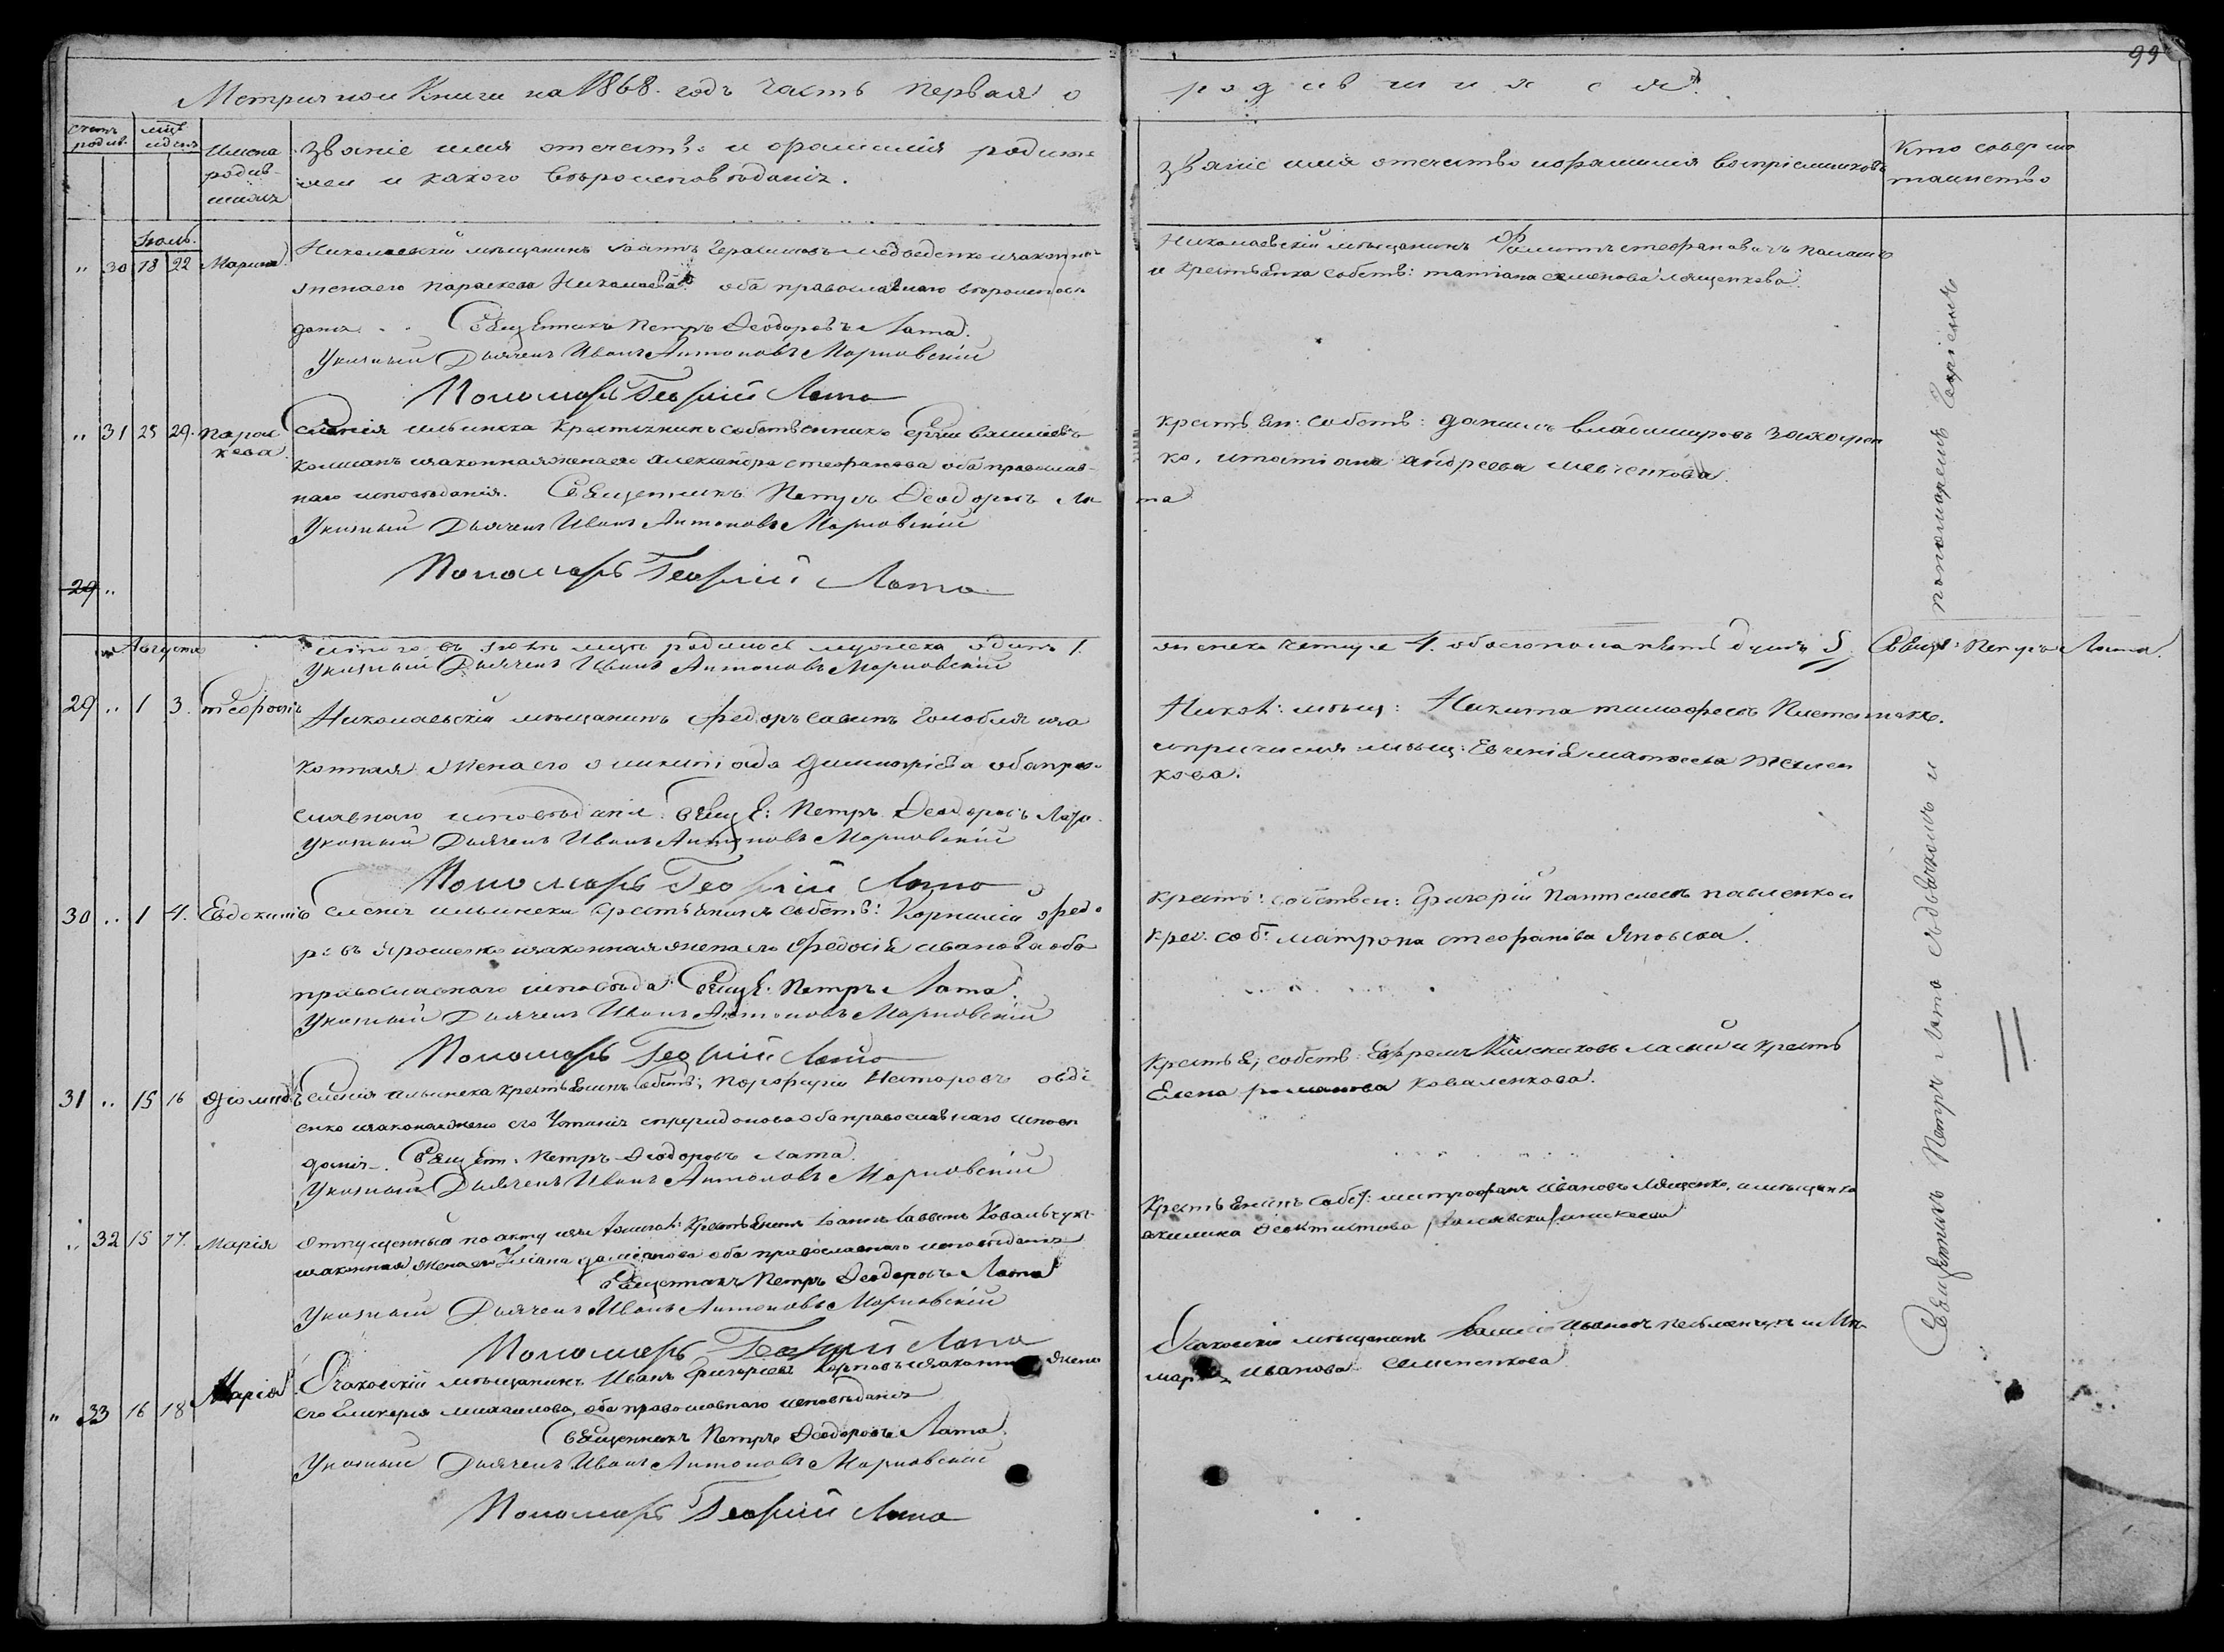 99
Метричной Книги на 1868. годъ часть первая о родившихся
счетъ родив.
мцъ и день
Имена родив- шихся
Званіе имя отечество и фамилія родите- лей и какого вѣроисповѣданія.
Званіе имя отечество и фамилія воспріемниковъ
Кто совершалъ таинство
Іюль.
" 30 18 22 Марина
Николаевскій мѣщанинъ Іоаннъ Герасимовъ Медведенко и законная
жена его Параскева Николаева оба православнаго вѣроиспове
данія. Священникъ Петръ Ѳеодоровъ Лата.
Указный Дьячекъ Иванъ Антоновъ Марковскій
Пономарь Георгій Лата
Николаевскій мѣщанинъ стефановичъ
и крестьянка собств: татіана семенова Лященкова.
" 31 25 29. Парас
кева.
Селенія ильинска Крестьянинъ собственникъ Сергій василіевъ
и законная жена его александра стефанова оба православ-
наго исповѣданія. Священникъ Петръ Ѳеодоровъ Ла та
Указный Дьячекъ Иванъ Антоновъ Марковскій
Пономарь Георгій Лата
крестьян: собств: даніилъ владимировъ
ко. и татіана андреева шевченкова.
29 "
Августъ
итого въ іюлѣ мцѣ родилось мужеска одинъ 1. женска четыре 4. обоего пола пять душъ 5 Свящ: Петръ Лата.
Указный Дьячекъ Иванъ Антоновъ Марковскій
29 " 1 3. Стефанъ
Николаевскій мѣщанинъ Федоръ савинъ Голобля и за
конная жена его димитріева оба право
славнаго исповѣданія. Священ: Петръ Ѳеодоровъ Лата.
Указный Дьячекъ Иванъ Антоновъ Марковскій
Пономарь Георгій Лата
Никол: мѣщ: Никита тимофеевъ
мѣщ: Евгенія матвеева
кова.
30 " 1 4. Евдокимъ
Селенія ильински крестьянинъ собств: Корнилій Федо
ровъ Ярошенко и законная жена его Феодосія иванова оба
православнаго исповѣда: Священ: Петръ Лата.
Указный Дьячекъ Иванъ Антоновъ Марковскій
Пономарь Георгій Лата
крестья: собствен: Григорій Пантелеевъ павленко и
крес. соб: матрона стефанова Яновска.
31 " 15 16 Діомидъ
Селенія ильинска крестьянинъ собств: Порфирій Несторовъ овді
енко и законная жена его Іустинія спиридонова оба православнаго исповѣ
данія. Священ. Петръ Ѳеодоровъ Лата.
Указный Дьячекъ Иванъ Антоновъ Марковскій
Крестья, собств: Ефремъ и кресть
Елена романова коваленкова.
" 32 15 17. Марія
Отпущенный по акту крестьянинъ Іоаннъ Саввинъ Ковальчукъ
и законная жена его Іуліана даміанова оба православнаго исповѣданія
Священникъ Петръ Ѳеодоровъ Лата
Указный Дьячекъ Иванъ Антоновъ Марковскій
Пономарь Георгій Лата
Крестьянинъ собст: митрофанъ Ивановъ Лященко, и мѣщанка
акилина
" 33 16 18 Марія
Очаковскій мѣщанинъ Иванъ Григоріевъ Карповъ и законная жена
его Гликерія михаилова, оба православнаго исповѣданія
Священникъ Петръ Ѳеодоровъ Лата
Указный Дьячекъ Иванъ Антоновъ Марковскій
Пономарь Георгій Лата
Очаковскій мѣщанинъ
Иванова Семененкова
Священникъ Петръ Лата съ дьячкомъ и пономаремъ Георгіемъ